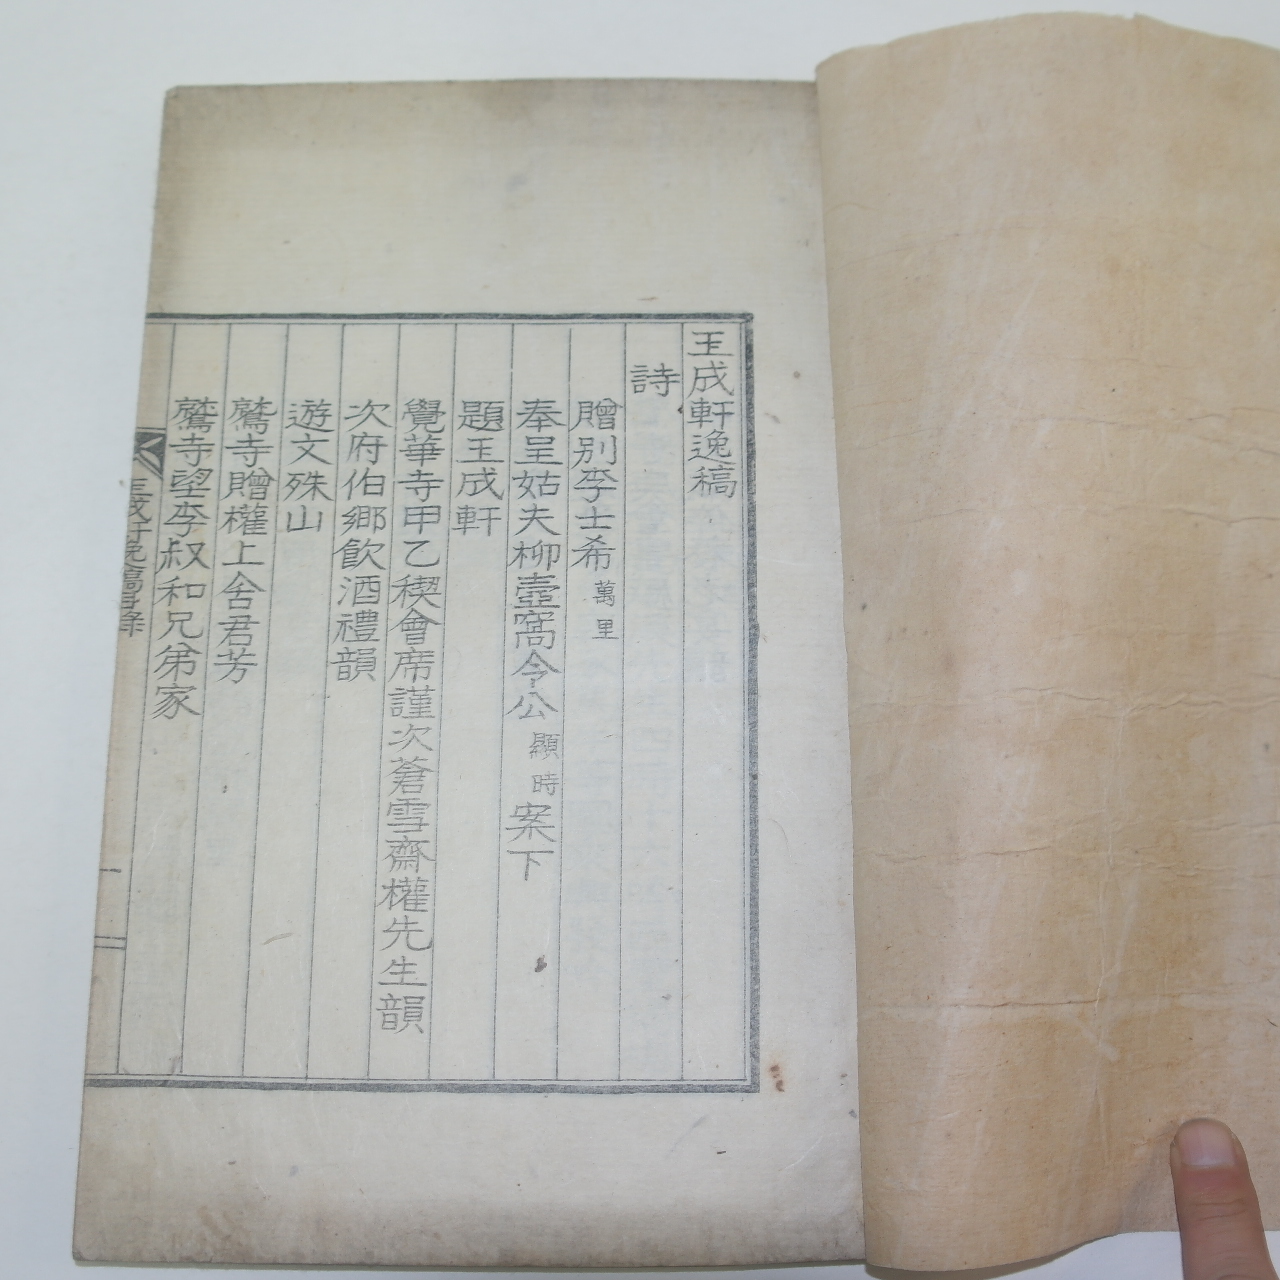 玉成軒逸稿
詩
贈別李士希萬里
奉呈姑夫柳壺窩令公顯時案下
題玉成軒
覺華寺甲乙稧會席謹次蒼雪齋權先生韻
次府伯鄉飮酒禮韻
遊文殊山
鷲寺贈權上舍君芳
鷲寺望李叔和兄弟家
玉成軒逸稿目錄
一